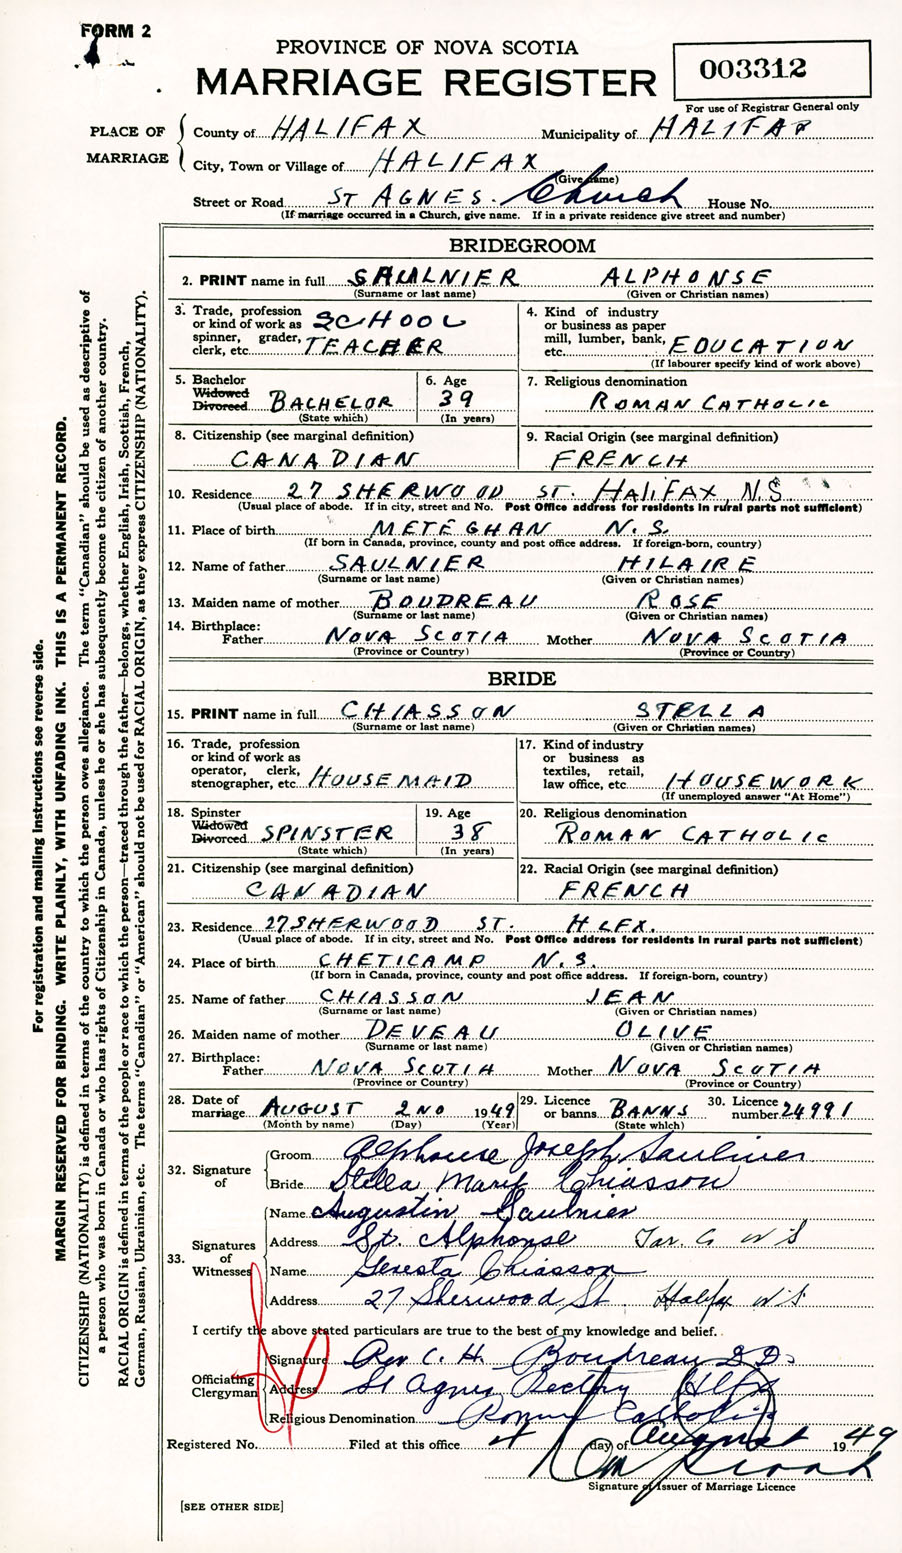 FORM 2
PROVINCE OF NOVA SCOTIA
MARRIAGE REGISTER
003312
For use of Registrar General only
PLACE OF MARRIAGE
County of HALIFAX Municipality of HALIFAX
City, Town or Village of HALIFAX
(Give name)
Street or Road ST AGNES. Church House No.
(If marriage occurred in a Church, give name. If in a private residence give street and number)
BRIDEGROOM
2. PRINT name in full SAULNIER ALPHONSE
(Surname or last name) (Given or Christian names)
3. Trade, profession
or kind of work as
spinner, grader,
clerk, etc. SCHOOL
TEACHER
4. Kind of industry
or business as paper
mill, lumber, bank,
etc. EDUCATION
(If labourer specify kind of work above)
5. Bachelor
Widowed
Divorced BACHELOR
(State which)
6. Age
39
(In years)
7. Religious denomination
ROMAN CATHOLIC
8. Citizenship (see marginal definition)
CANADIAN
9. Racial Origin (see marginal definition)
FRENCH
10. Residence 27 SHERWOOD ST. HALIFAX, N.S.
(Usual place of abode. If in city, street and No. Post Office address for residents in rural parts not sufficient)
11. Place of birth METEGHAN N.S.
(If born in Canada, province, county and post office address. If foreign-born, country)
12. Name of father SAULNIER HILAIRE
(Surname or last name) (Given or Christian names)
13. Maiden name of mother BOUDREAU ROSE
(Surname or last name) (Given or Christian names)
14. Birthplace:
Father NOVA SCOTIA Mother NOVA SCOTIA
(Province or Country) (Province or Country)
BRIDE
15. PRINT name in full CHIASSON STELLA
(Surname or last name) (Given or Christian names)
16. Trade, profession
or kind of work as
operator, clerk,
stenographer, etc. HOUSEMAID
17. Kind of industry
or business as
textiles, retail,
law office, etc. HOUSEWORK
(If unemployed answer "At Home")
18. Spinster
Widowed
Divorced SPINSTER
(State which)
19. Age
38
(In years)
20. Religious denomination
ROMAN CATHOLIC
21. Citizenship (see marginal definition)
CANADIAN
22. Racial Origin (see marginal definition)
FRENCH
23. Residence 27 SHERWOOD ST. HLFX.
(Usual place of abode. If in city, street and No. Post Office address for residents in rural parts not sufficient)
24. Place of birth CHETICAMP N.S.
(If born in Canada, province, county and post office address. If foreign-born, country)
25. Name of father CHIASSON JEAN
(Surname or last name) (Given or Christian names)
26. Maiden name of mother DEVEAU OLIVE
(Surname or last name) (Given or Christian names)
27. Birthplace:
Father NOVA SCOTIA Mother NOVA SCOTIA
(Province or Country) (Province or Country)
28. Date of
marriage AUGUST 2ND 1949
(Month by name) (Day) (Year)
29. Licence
or banns BANNS
(State which)
30. Licence
number 24991
32. Signature of
Groom Alphonse Joseph Saulnier
Bride Stella Mary Chiasson
33. Signatures of Witnesses
Name Augustin Saulnier
Address St. Alphonse Yar. Co N S
Name Chiasson
Address 27 Sherwood St Halifax N S
I certify the above stated particulars are true to the best of my knowledge and belief.
Officiating Clergyman
Signature Rev C. H. Boudreau
Address St Agnes Rectory Hlfx
Religious Denomination Roman Catholic
Registered No. Filed at this office 4 day of August 1949
Signature of Issuer of Marriage Licence
[SEE OTHER SIDE]
For registration and mailing instructions see reverse side.
MARGIN RESERVED FOR BINDING. WRITE PLAINLY, WITH UNFADING INK. THIS IS A PERMANENT RECORD.
CITIZENSHIP (NATIONALITY) is defined in terms of the country to which the person owes allegiance. The term "Canadian" should be used as descriptive of
a person who was born in Canada or who has rights of Citizenship in Canada, unless he or she has subsequently become the citizen of another country.
RACIAL ORIGIN is defined in terms of the people or race to which the person—traced through the father—belongs, whether English, Irish, Scottish, French,
German, Russian, Ukrainian, etc. The terms "Canadian" or "American" should not be used for RACIAL ORIGIN, as they express CITIZENSHIP (NATIONALITY).